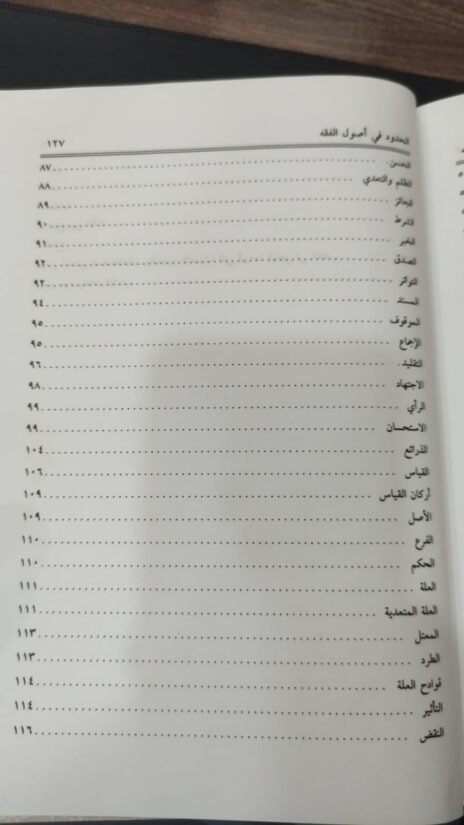 الحدود في أصول الفقه ١٢٧
الحسن ٨٧
الظلم والتعدي ٨٨
الجائز ٨٩
الشرط ٩٠
الخبر ٩١
الصدق ٩٢
التواتر ٩٢
المسند ٩٤
الموقوف ٩٥
الإجماع ٩٥
التقليد ٩٦
الاجتهاد ٩٨
الرأي ٩٩
الاستحسان ٩٩
الذرائع ١٠٤
القياس ١٠٦
أركان القياس ١٠٩
الأصل ١٠٩
الفرع ١١٠
الحكم ١١٠
العلة ١١١
العلة المتعدية ١١١
المعتل ١١٣
الطرد ١١٣
قوادح العلة ١١٤
التأثير ١١٤
النقض ١١٦